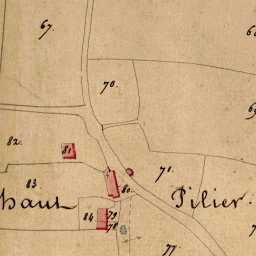 67.
70.
82.
81
71.
83.
80.
haut
Pilier.
84
79
78
77